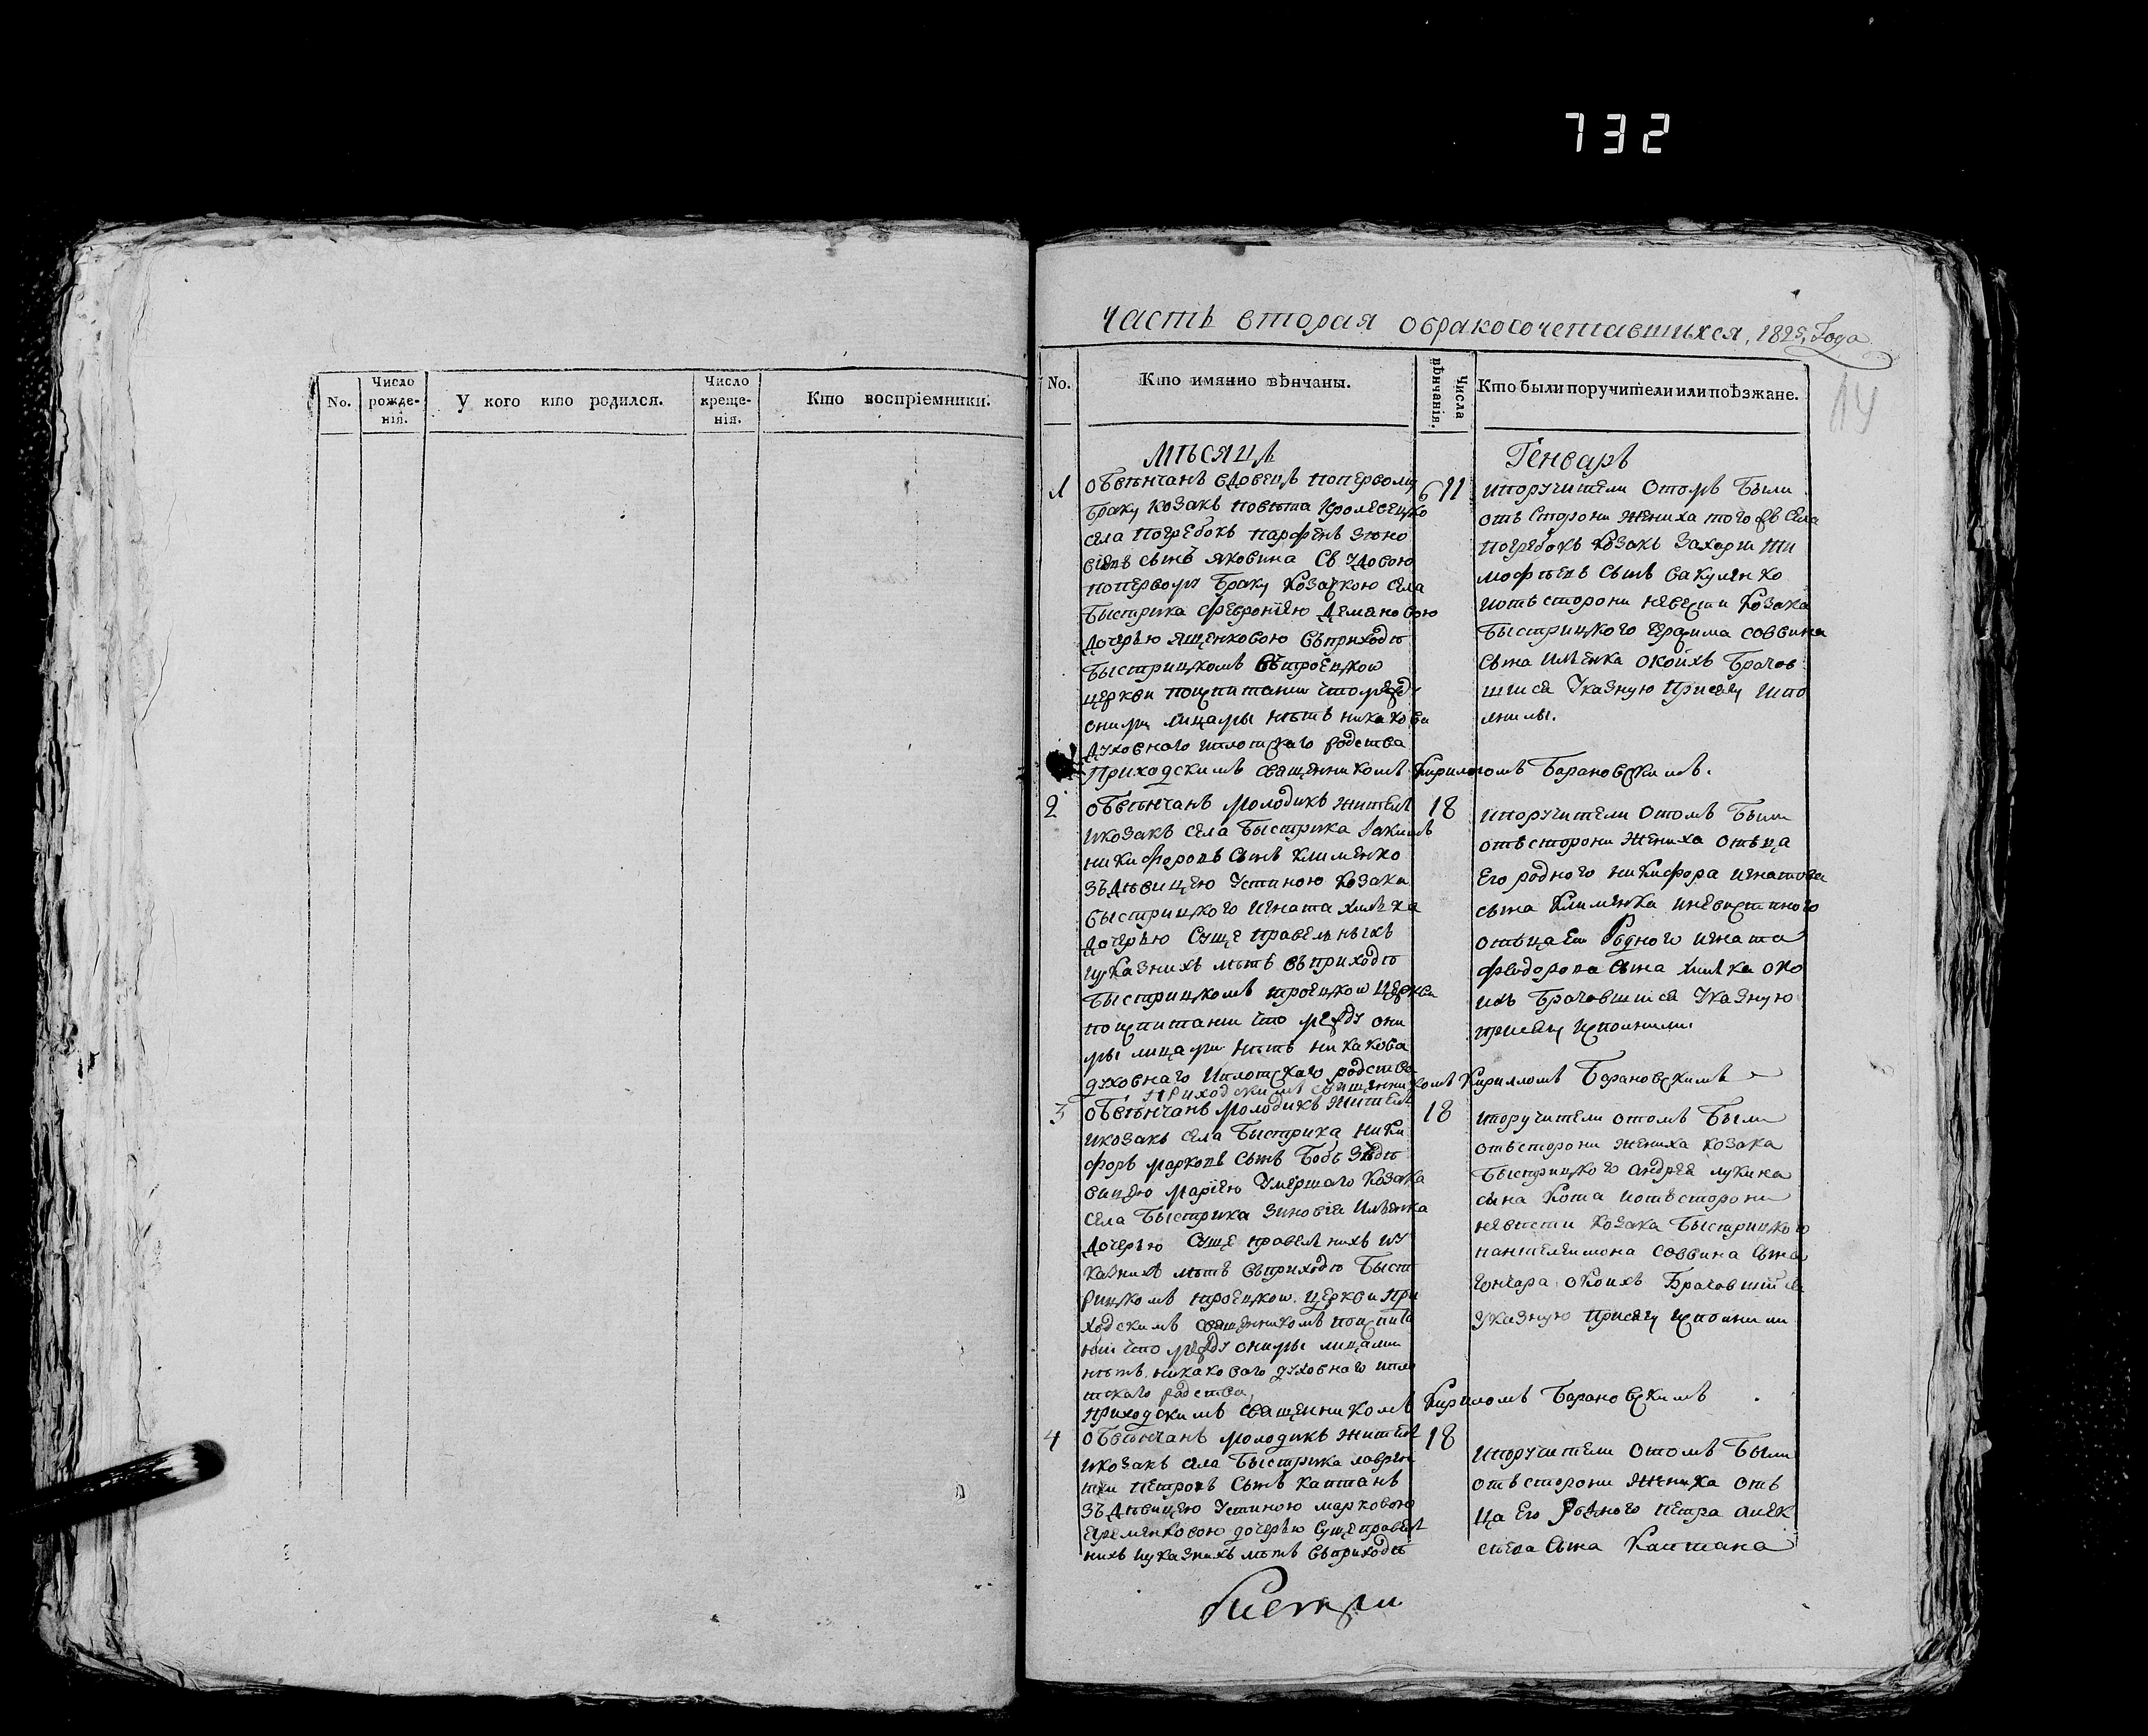 732
No.
Число рожде-нія.
У кого кто родился.
Число креще-нія.
Кто воспріемники.
Часть вторая обракосочетавшихся, 1825, Года
14
No.
Кто имянно вѣнчаны.
Числа вѣнчанія.
Кто были поручители или поѣзжане.
Мѣсяцъ
Генварь
1
обвѣнчанъ вдовецъ поперволу
браку козакъ повѣта Кролевецко
села погребокъ парфенъ зѣно
вѣевъ сынъ яковина съ удовою
поперволу браку козачкою села
Быстрика февронѣею Демановою
дочерью ященковою въприходѣ
Быстрицкомъ вътроецкой
церкви поиспитании что между
оними лицами нѣтъ никакова
духовнаго иплотскаго родства
Приходскимъ священникомъ Кириломъ Барановскимъ.
11
ипоручители отомъ Были
отъ сторони жениха того жъ села
погребокъ козакъ захарій ти
мофѣевъ сынъ вакуленко
иотъ сторони невести козака
Быстрицкого саввина
сына окоихъ Брачов
шися указную присягу испо
лнили.
2
обвѣнчанъ молодикъ жителъ
икозакъ села Быстрика Іакимъ
никифоровъ сынъ клименко
зъдѣвицею Устиною козака
быстрицкого игната хилка
дочерью Суще правельныхъ
иуказнихъ лѣтъ въприходѣ
Быстрицкомъ троецкой церкви
поиспитании что между они
мы лицами нѣтъ никакова
духовнаго иплотскаго родства
Приходскимъ священникомъ Кирилломъ Барановскимъ
18
ипоручители отомъ Были
отъсторони жениха отъца
Его родного никифора игнатова
сына клименка иневистиного
отъца Ей Родного игната
феодорова сына хилка око
ихъ Брачовшися указную
присягу исполнили
3
обвѣнчанъ молодикъ жителъ
икозакъ села Быстрика ники
форъ марковъ сынъ Бобъ зъдѣ
вицею марѣею умершаго козака
села Быстрика зиновѣя
дочерью Суще правелнихъ иу
казнихъ лѣтъ въприходѣ Быст
рицкомъ троецкой церкви При
ходскимъ священникомъ поиспита
нии что между оними лицами
нѣтъ никаковаго духовнаго ипло
тскаго родства,
Приходскимъ священникомъ Кириломъ Барановскимъ
18
ипоручители отомъ Были
отъсторони жениха козака
Быстрицкого андрея лукина
сына Кота иотъсторони
невисти козака Быстрицкого
пантелеимона саввина сына
гончара окоихъ Брачовшися
указную присягу исполнили
4
обвѣнчанъ молодикъ жителъ
икозакъ села Быстрика лаврен
тии петровъ сынъ каптанъ
зъдѣвицею Устиною марковою
еременковою дочерью Сущеправел
нихъ иуказнихъ лѣтъ въприходѣ
18
ипоручители отомъ Были
отъсторони жениха отъ
ца Его Родного петра алек
сѣева сына Каптана